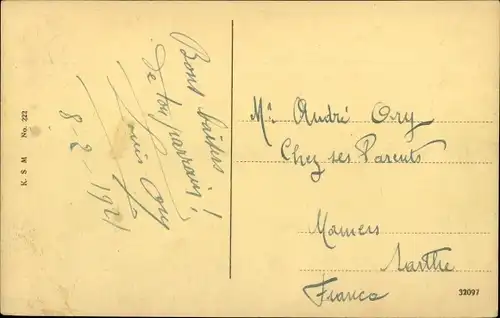 Bons baisers
de ton parrain !
Louis Ory
8-2-1921
K. S. M No. 222
Mr. André Ory
Chez ses Parents
Mamers
Sarthe
France
32097